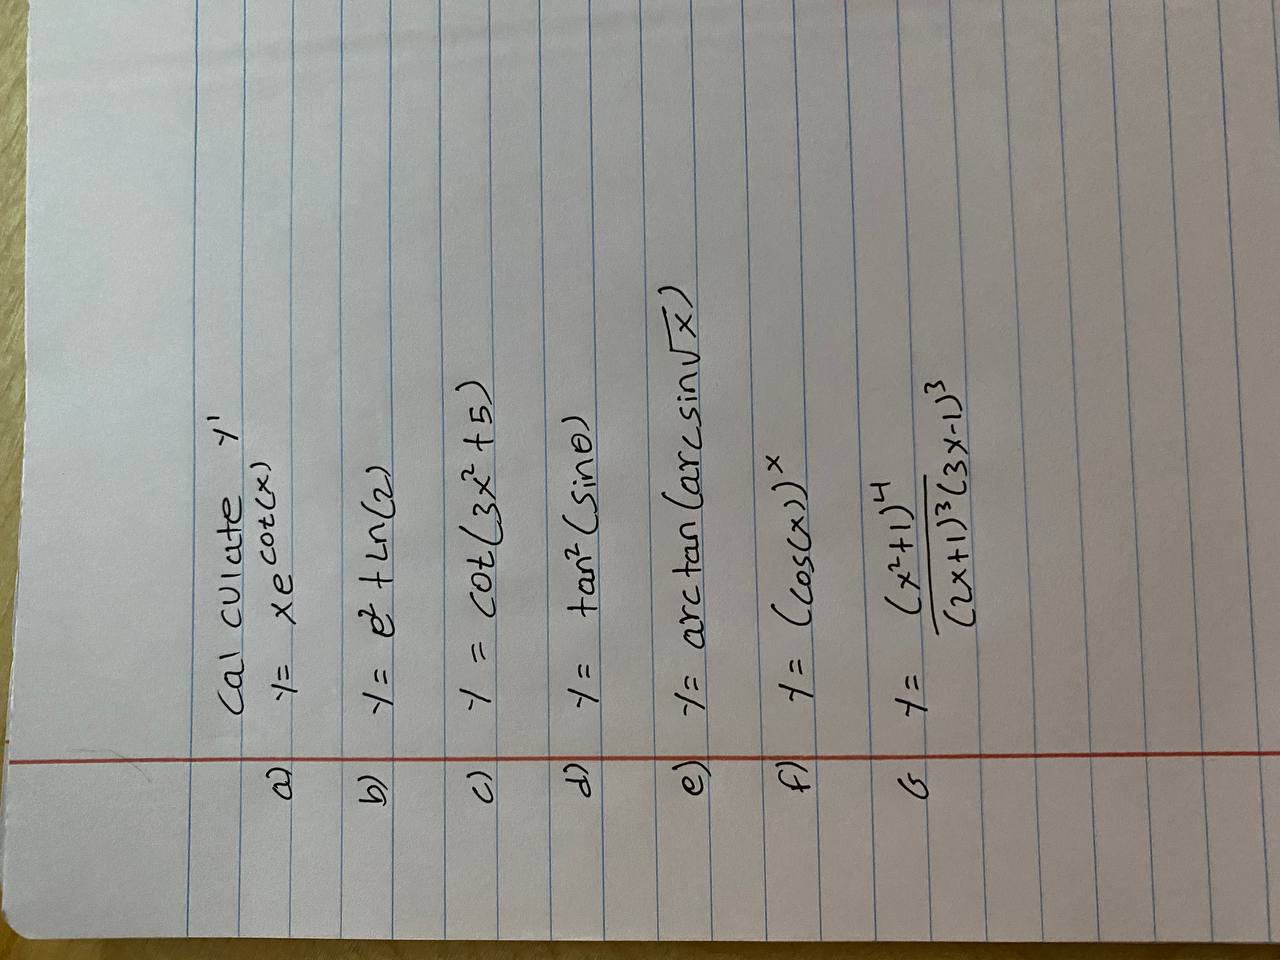 Calculate y'
a) y = xe^cot(x)
b) y = e² + Ln(2)
c) y = cot(3x² + 5)
d) y = tan²(sinθ)
e) y = arctan(arcsin√x)
f) y = (cos(x))^x
G y = (x²+1)⁴
(2x+1)³(3x-1)³